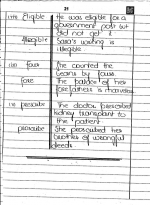 Eligible He was eligible for a
government post but
did not get it
Illegible Sara's writing is
illegible
four She counted the
beans by fours
fore The palace of her
forefathers is marvelous
prescribe The doctor prescribed
kidney transplant to
the patient
proscribe She proscribed her
brother of wrongful
deeds